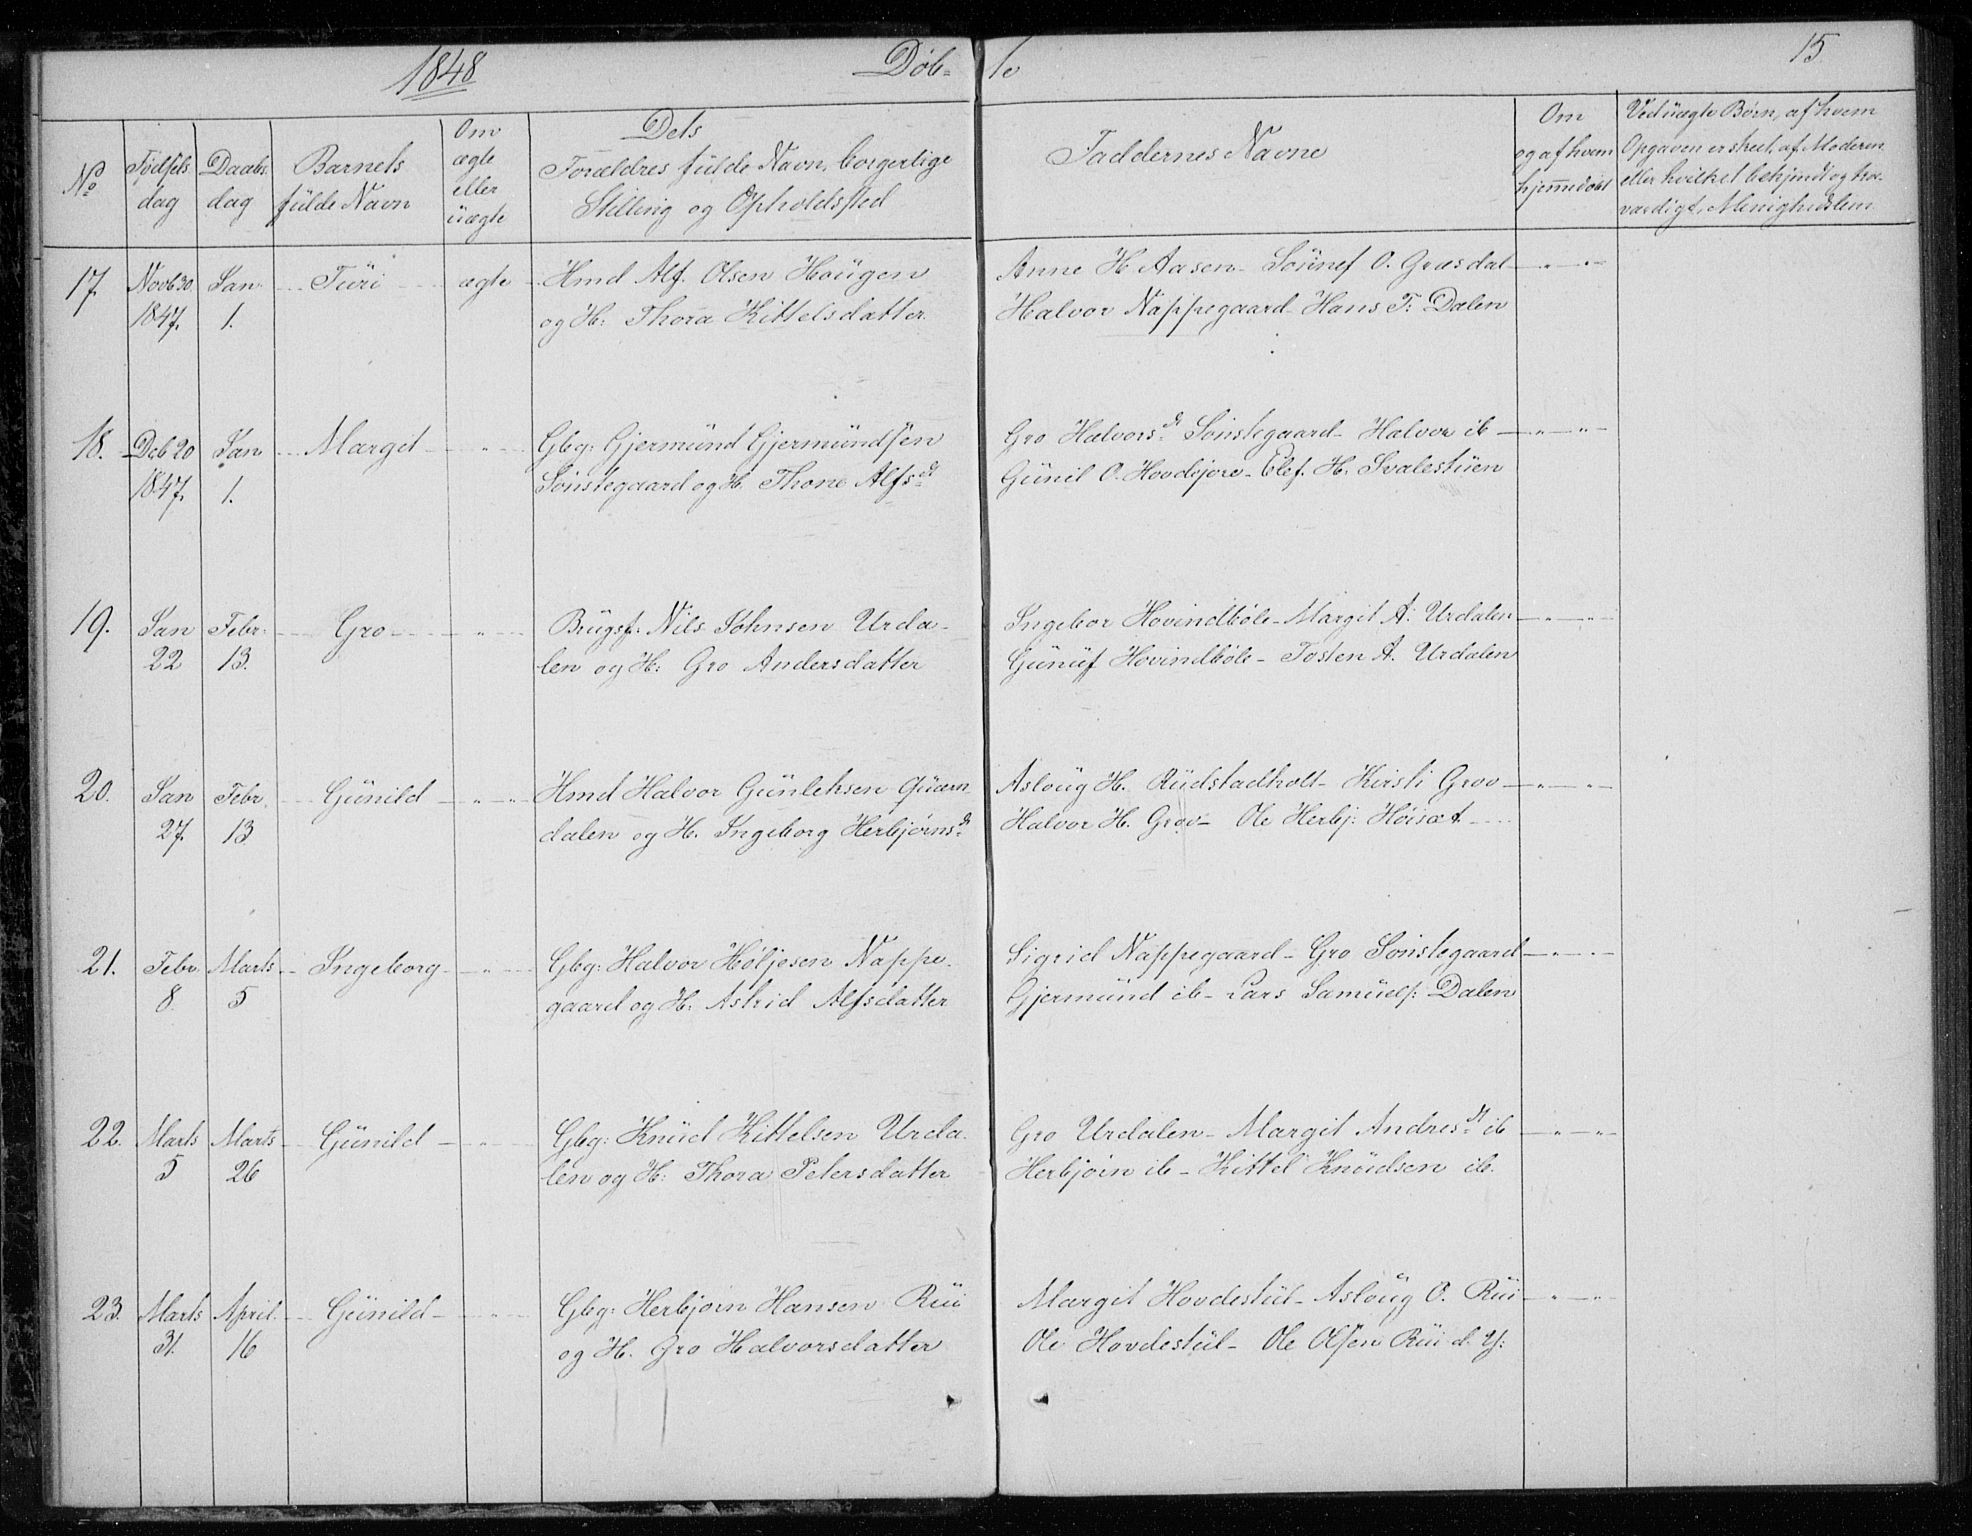 1848 Døb- te 15.
No
Fødsels dag
Daabs dag
Barnets fulde Navn
Om ægte eller uægte
Dets Forældres fulde Navn, borgerlige Stilling og Opholdsted
Faddernes Navne
Om og af hvem hjemmedøbt
Ved uægte Børn, af hvem
Opgaven er skeet, af Moderen
eller hvilket bekjendt og tro-
værdigt Menighedslem
17. Novb 30 Jan. Turi ægte Hmd Alf Olsen Haugen Anne H. Aasen - Sønnef O. Græsdal
1847. 1. og H: Thora Kittelsdatter. Halvor Nappegaard - Hans T: Dalen
18. Deb 20 Jan Marget - „ - Gbg: Gjermund Gjermundsen Gro Halvorsdr Sønstegaard - Halvor ib - „ - „ -
1847. 1. Sønstegaard og H. Thone Alfsdr Gunil O. Hovdejore - Elef H. Svalestuen
19. Jan Febr. Gro - „ - Brugsf: Nils Johnsen Urda- Ingebor Hovindbøle - Margit A. Urdalen - „ - „ -
22 13. len og H: Gro Andersdatter Gunuf Hovindbøle - Tosten A. Urdalen
20. Jan Febr. Gunild - „ - Hmd Halvor Gunleksen Quærn- Asloug H. Rudstadholt - Kirsti Grov - „ - „ -
27. 13 dalen og H. Ingeborg Herbjørnsdr Halvor H. Grov - Ole Herbj: Høisæt
21. Febr. Marts Ingeborg - „ - Gbg: Halvor Høljesen Nappe- Sigrid Nappegaard - Gro Sønstegaard - „ - „ -
8. 5 gaard og H: Astrid Alfsdatter Gjermund ib - Lars Samuels: Dalen
22. Marts Marts Gunild - „ - Gbg: Knud Kittelsen Urda- Gro Urdalen - Margit Andresdt ib - „ - „ -
5 26 len og H: Thora Petersdatter Herbjøin ib - Kittel Knudsen ib.
23. Marts April Gunild - „ - Gbg: Herbjøin Hansen Rui Margit Hovdestul - Asloug O. Rui - „ - „ -
31. 16 og H. Gro Halvorsdatter Ole Hovdestul - Ole Olsen Rui d. y: